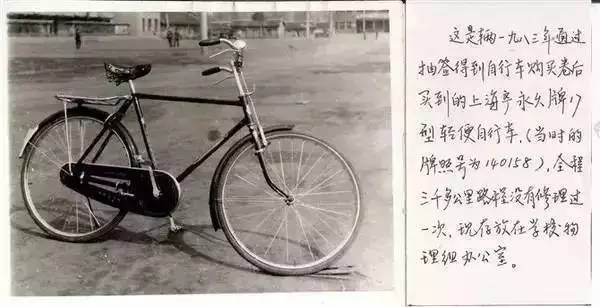 这是辆一九八三年通过
抽签得到自行车购买卷后
买到的上海产永久牌17
型轻便自行车，(当时的
牌照号为140158），全程
三千多公里路程没有修理过
一次，现存放在学校物
理组办公室。